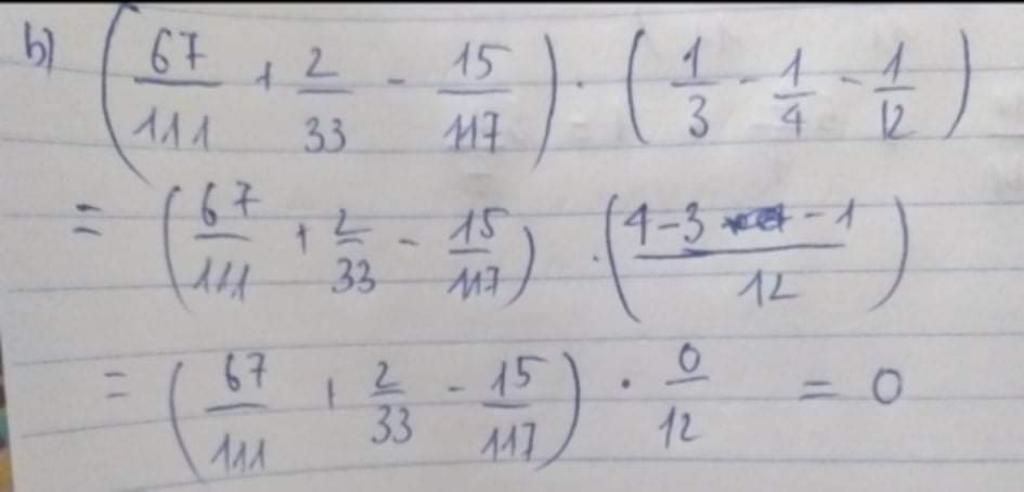 b) (67/111 + 2/33 - 15/117) . (1/3 - 1/4 - 1/12)
= (67/111 + 2/33 - 15/117) . ((4-3 -1)/12)
= (67/111 + 2/33 - 15/117) . 0/12 = 0